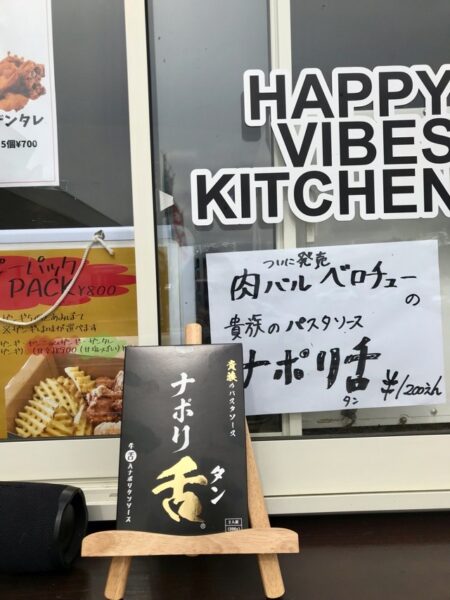 デンタレ
5個¥700
HAPPY
VIBES
KITCHEN
ついに発売
肉バル ベロチューの
貴族のパスタソース
ナポリ舌
タン
¥1200えん
パック
PACK ¥800
貴族のパスタソース
ナポリ舌
タン
牛舌入ナポリタンソース